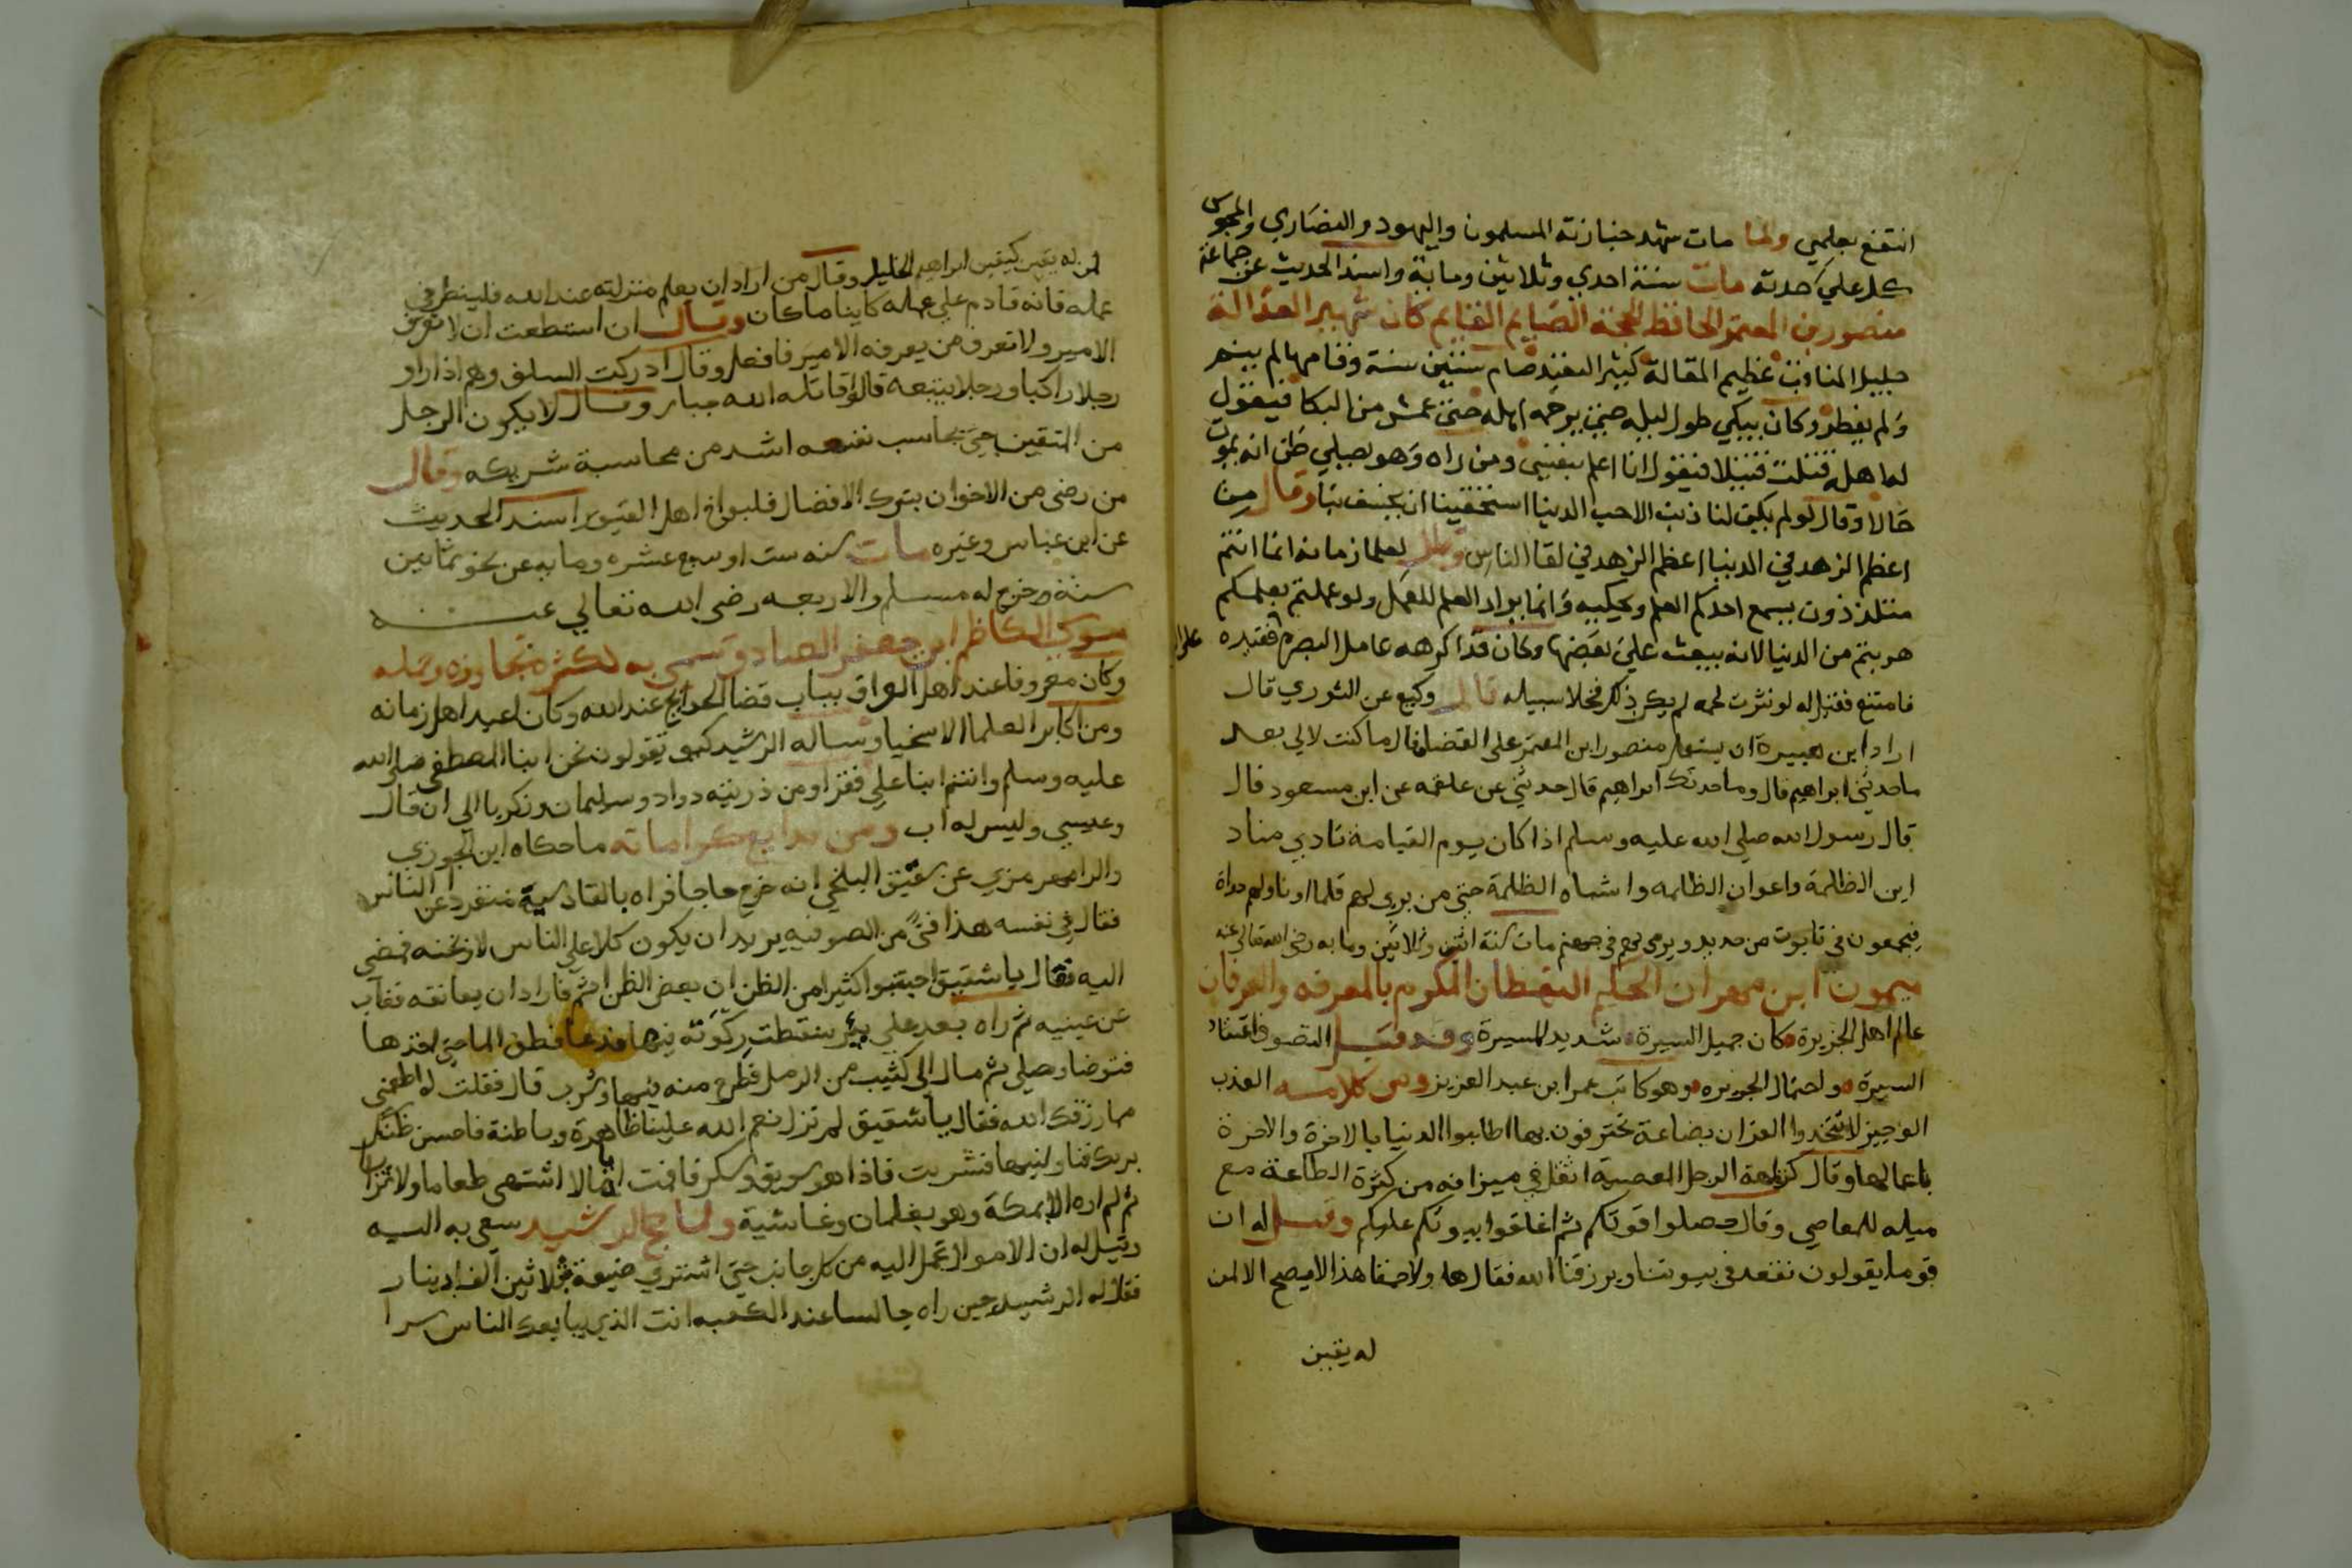 انتفع بعلمي ولما مات شهد جنازته المسلمون واليهود والنصاري والمجوس
كل علي حدته مات سنة احدي وثلاثين ومابة واسند الحديث عن جماعة
منصور بن المعتمر الحافظ الحجة الصايم القايم كان شهير العدالة
جليل المناقب عظيم المقالة كثير التعبد صام ستين سنة وقامها لم ينم
ولم يفطر وكان يبكي طول ليله حتي يرحمه اهله حتي عمش من البكا فيقول
له اهله قتلت قتيلا فيقول انا اعلم بنفسي ومن راه وهو يصلي ظن انه يموت
حالا وقال لو لم يكن لنا ذنب الا حب الدنيا استحقينا ان يخسف بنا وقال من
اعظم الزهد في الدنيا اعظم الزهد في لقا الناس وقال لعلما زمانه انما انتم
متلذذون يسمع احدكم العلم ويحكيه وانما يراد العلم للعمل ولو عملتم بعلمكم
هربتم من الدنيا لانه يبعث علي بعضها وكان قد اكرهه عامل البصرة فقيده علي
فامتنع فقيل له لو نثرت لحمه لم يكن ذلك فخلا سبيله قال وكيع عن الثوري قال
اراد ابن هبيرة ان يستعمل منصور ابن المعتمر علي القضا فقال ما كنت لالي بعد
ما حدثني ابراهيم قال وما حدثك ابراهيم قال حدثني عن علقمه عن ابن مسعود قال
قال رسول الله صلي الله عليه وسلم اذا كان يوم القيامة نادي مناد
اين الظلمة واعوان الظلمه واشباه الظلمة حتي من بري لهم قلما او ناولهم دواة
فيجمعون في تابوت من حديد ويرمي بهم في جهنم مات سنة اثنين وثلاثين ومابه رضي الله تعالي عنه
ميمون ابن مهران الحكيم اليقظان المكرم بالمعرفة والعرفان
عالم اهل الجزيرة وكان جميل السيرة شديد المسيرة وقد قيل التصوف اعتقاد
السيرة ولحتمال الجويره وهو كاتب عمر ابن عبد العزيز ومن كلامه العذب
الوجيز لا تتخذوا القران بضاعة تحترفون بها اطابوا الدنيا بالاخرة والاخرة
باعمالها وقال كراهة الرجل المعصية اثقل في ميزانه من كثرة الطاعة مع
ميله للمعاصي وقال حصلوا قوتكم ثم اغلقوا بيوتكم عليكم وقيل له ان
قوما يقولون نقعد في بيوتنا ويرزقنا الله فقال ها ولا حمقا هذا لا يصح الا لمن
له يقين
لمن له يقين كيقين ابراهيم الخليل وقال من اراد ان يعلم منزلته عند الله فلينظر في
عمله فانه قادم علي عمله كاينا ما كان وقال ان استطعت ان لا تعرف
الامير ولا تعرف من يعرفه الامير فافعل وقال ادركت السلف وهم اذا راو
رجلا راكبا ورجلا يتبعه قالوا قاتله الله جبار وقال لا يكون الرجل
من المتقين حتي يحاسب نفسه اشد من محاسبة شريكه وقال
من رضي من الاخوان بترك الافضال فليواخ اهل القبور اسند الحديث
عن ابن عباس وغيره مات سنه ست او سبع عشره ومابه عن نحو ثمانين
سنة وخرج له مسلم والاربعه رضي الله تعالي عنه
موسي الكاظم ابن جعفر الصادق سمي به لكثرة تجاوزه وحلمه
وكان معروفا عند اهل العراق بباب قضا الحوايج عند الله وكان اعبد اهل زمانه
ومن اكابر العلما الاسخيا وساله الرشيد كيف تقولون نحن ابنا المصطفي صلي الله
عليه وسلم وانتم ابنا علي فقرا ومن ذريته دواد وسليمان وزكريا الي ان قال
وعيسي وليس له اب ومن بدايع كراماته ما حكاه ابن الجوزي
والرامهرمزي عن شقيق البلخي انه خرج حاجا فراه بالقادسية منفردا عن الناس
فقال في نفسه هذا فتي من الصوفيه يريد ان يكون كلا علي الناس لاوبخنه فمضي
اليه فقال يا شقيق اجتنبوا كثيرا من الظن ان بعض الظن اثم فاراد ان يعانقه فغاب
عن عينيه ثم راه بعد علي بير سقطت ركوته فيها فدعا فطف الما حتي اخذها
فتوضا وصلي ثم مال الي كثيب من الرمل فطرح منه فيها وشرب قال فقلت له اطعمني
مما رزقك الله فقال يا شقيق لم تزل نعم الله علينا ظاهرة وباطنة فاحسن ظنك
بربك فناولنيها فشربت فاذا هو سويق وسكر فاقمت اياما لا اشتهي طعاما ولا شرابا
ثم لم اره الا بمكة وهو بغلمان وغاشية ولما حج الرشيد سعي به اليه
وقيل له ان الاموال تحمل اليه من كل جانب حتي اشتري ضيعة بثلاثين الف دينار
فقال له الرشيد حين راه جالسا عند الكعبه انت الذي يبايعك الناس سرا